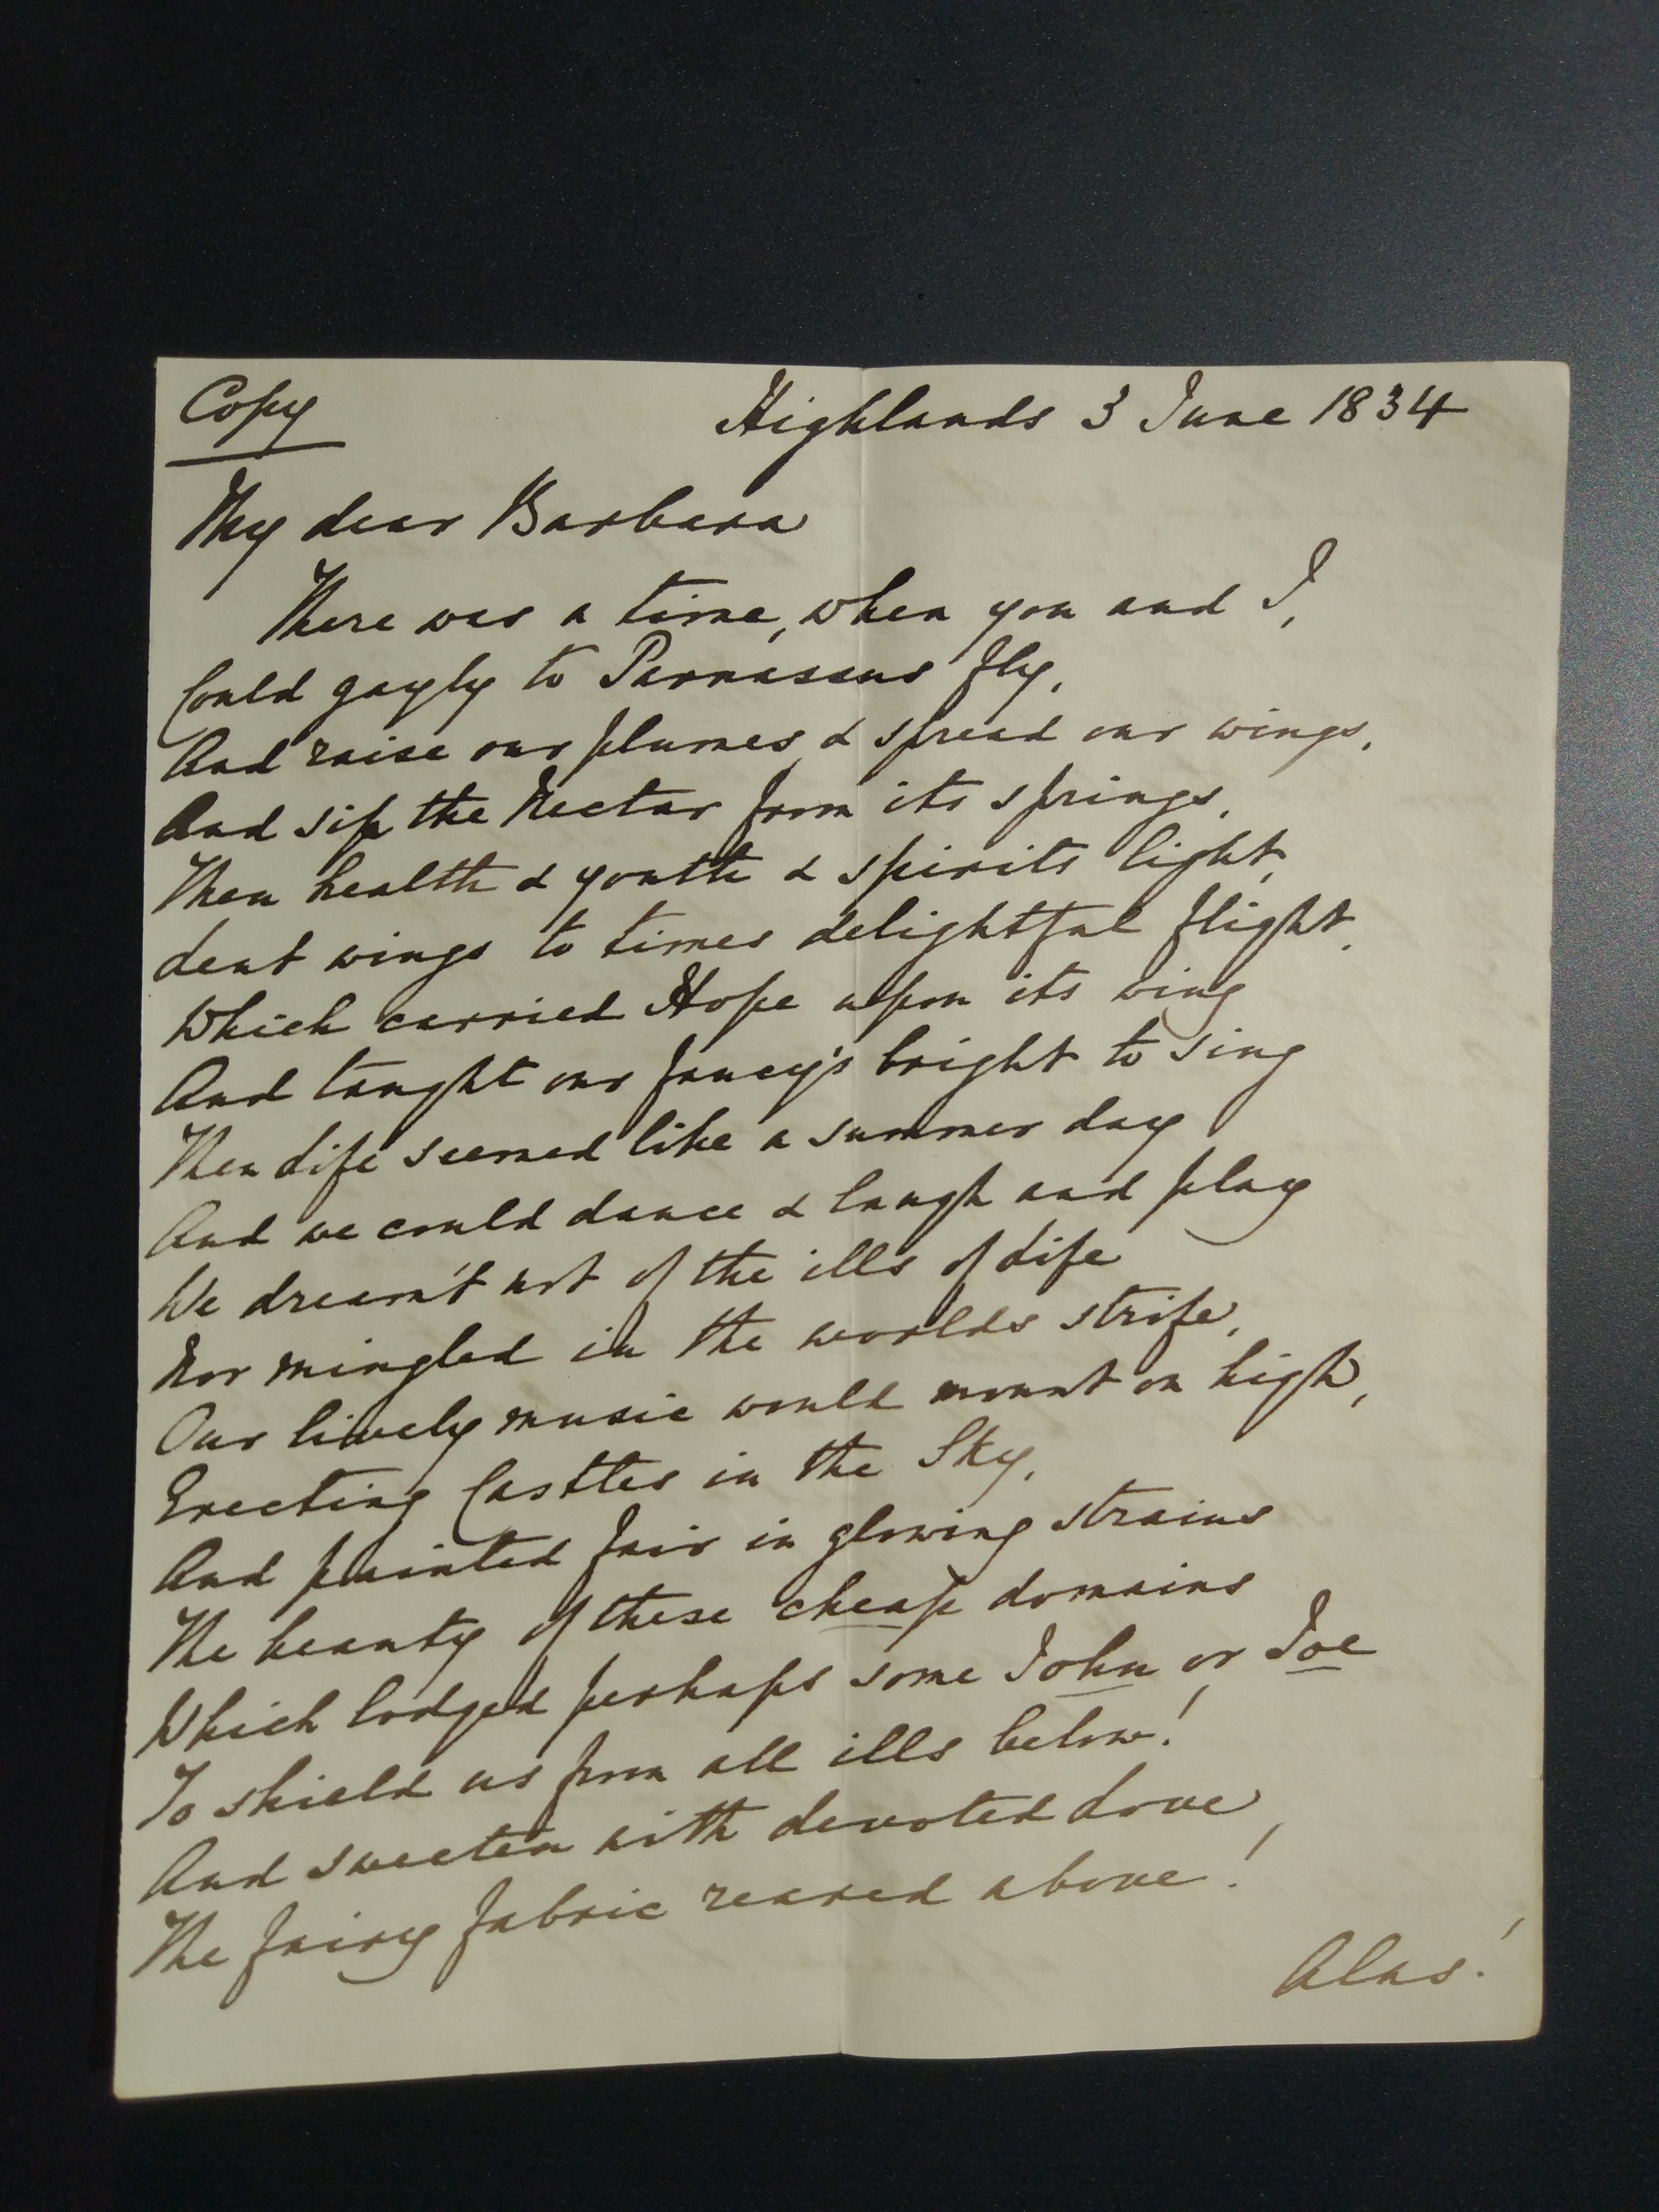 Copy
Highlands 3 June 1834
My dear Barbara
There was a time, when you and I,
Could gayly to Parnassus fly,
And raise our plumes, & spread our wings,
And sip the Nectar from its springs,
Then health & youth & spirits light,
Lent wings to times delightful flight,
Which carried Hope upon its wing
And taught our fancy's bright to sing
Then Life seemed like a summer day
And we could dance & laugh and play
We dream't not of the ills of Life
Nor mingled in the worlds strife,
Our lively music would mount on high,
Erecting Castles in the Sky,
And painted fair in glowing strains
The beauty of these cheap domains
Which lodged perhaps some John or Joe
To shield us from all ills below!
And sweeten with devoted Love,
The fairy fabric reared above!
Alas!